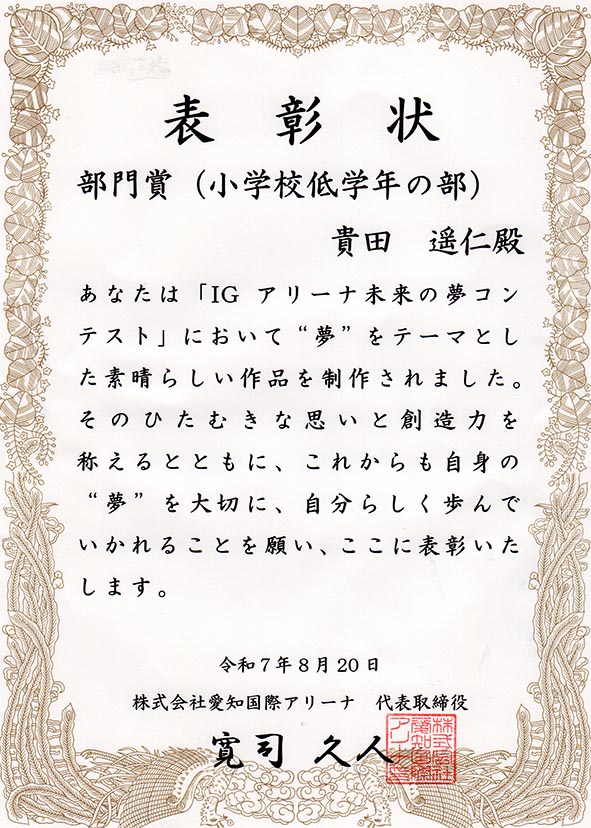 表彰状
部門賞（小学校低学年の部）
貴田　遥仁殿
あなたは「IG アリーナ未来の夢コン
テスト」において“夢”をテーマとし
た素晴らしい作品を制作されました。
そのひたむきな思いと創造力を
称えるとともに、これからも自身の
“夢”を大切に、自分らしく歩んで
いかれることを願い、ここに表彰いた
します。
令和7年8月20日
株式会社愛知国際アリーナ　代表取締役
寛司　久人